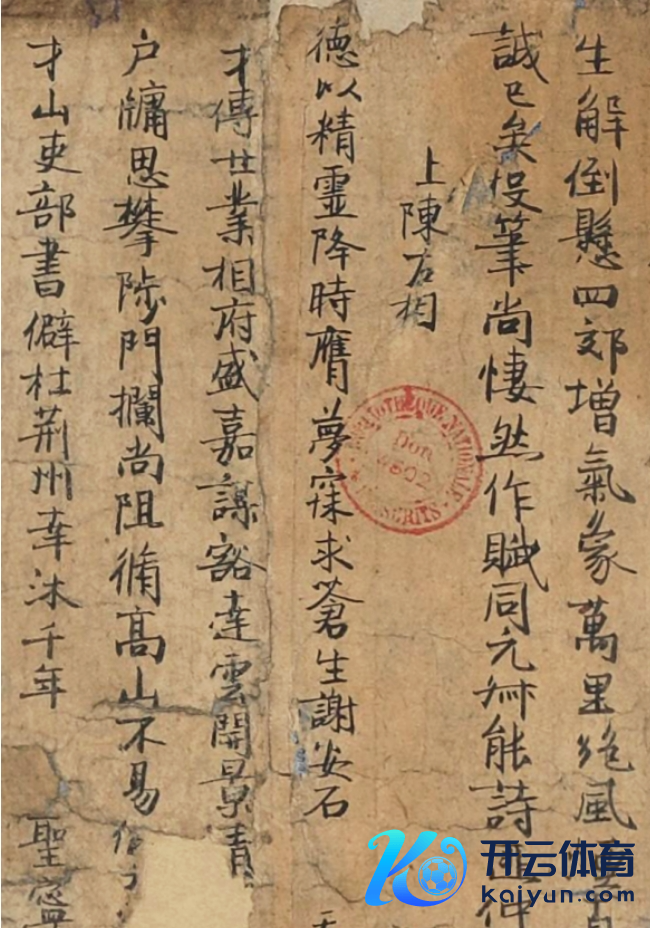 生解倒懸四郊增氣象萬里絕風
誠已矣投筆尚悽然作賦同元淑能詩匪仲
上陳左相
德以精靈降時膺夢寐求蒼生謝安石
才傳世業相府盛嘉謀豁達雲開景清
戶牖思攀陟門攔尚阻脩高山不易
才山吏部書僻杜荊州幸沐千年 聖寧
BIBLIOTHEQUE NATIONALE
Don
MANUSCRITS
开云体育
Kaiyun.com